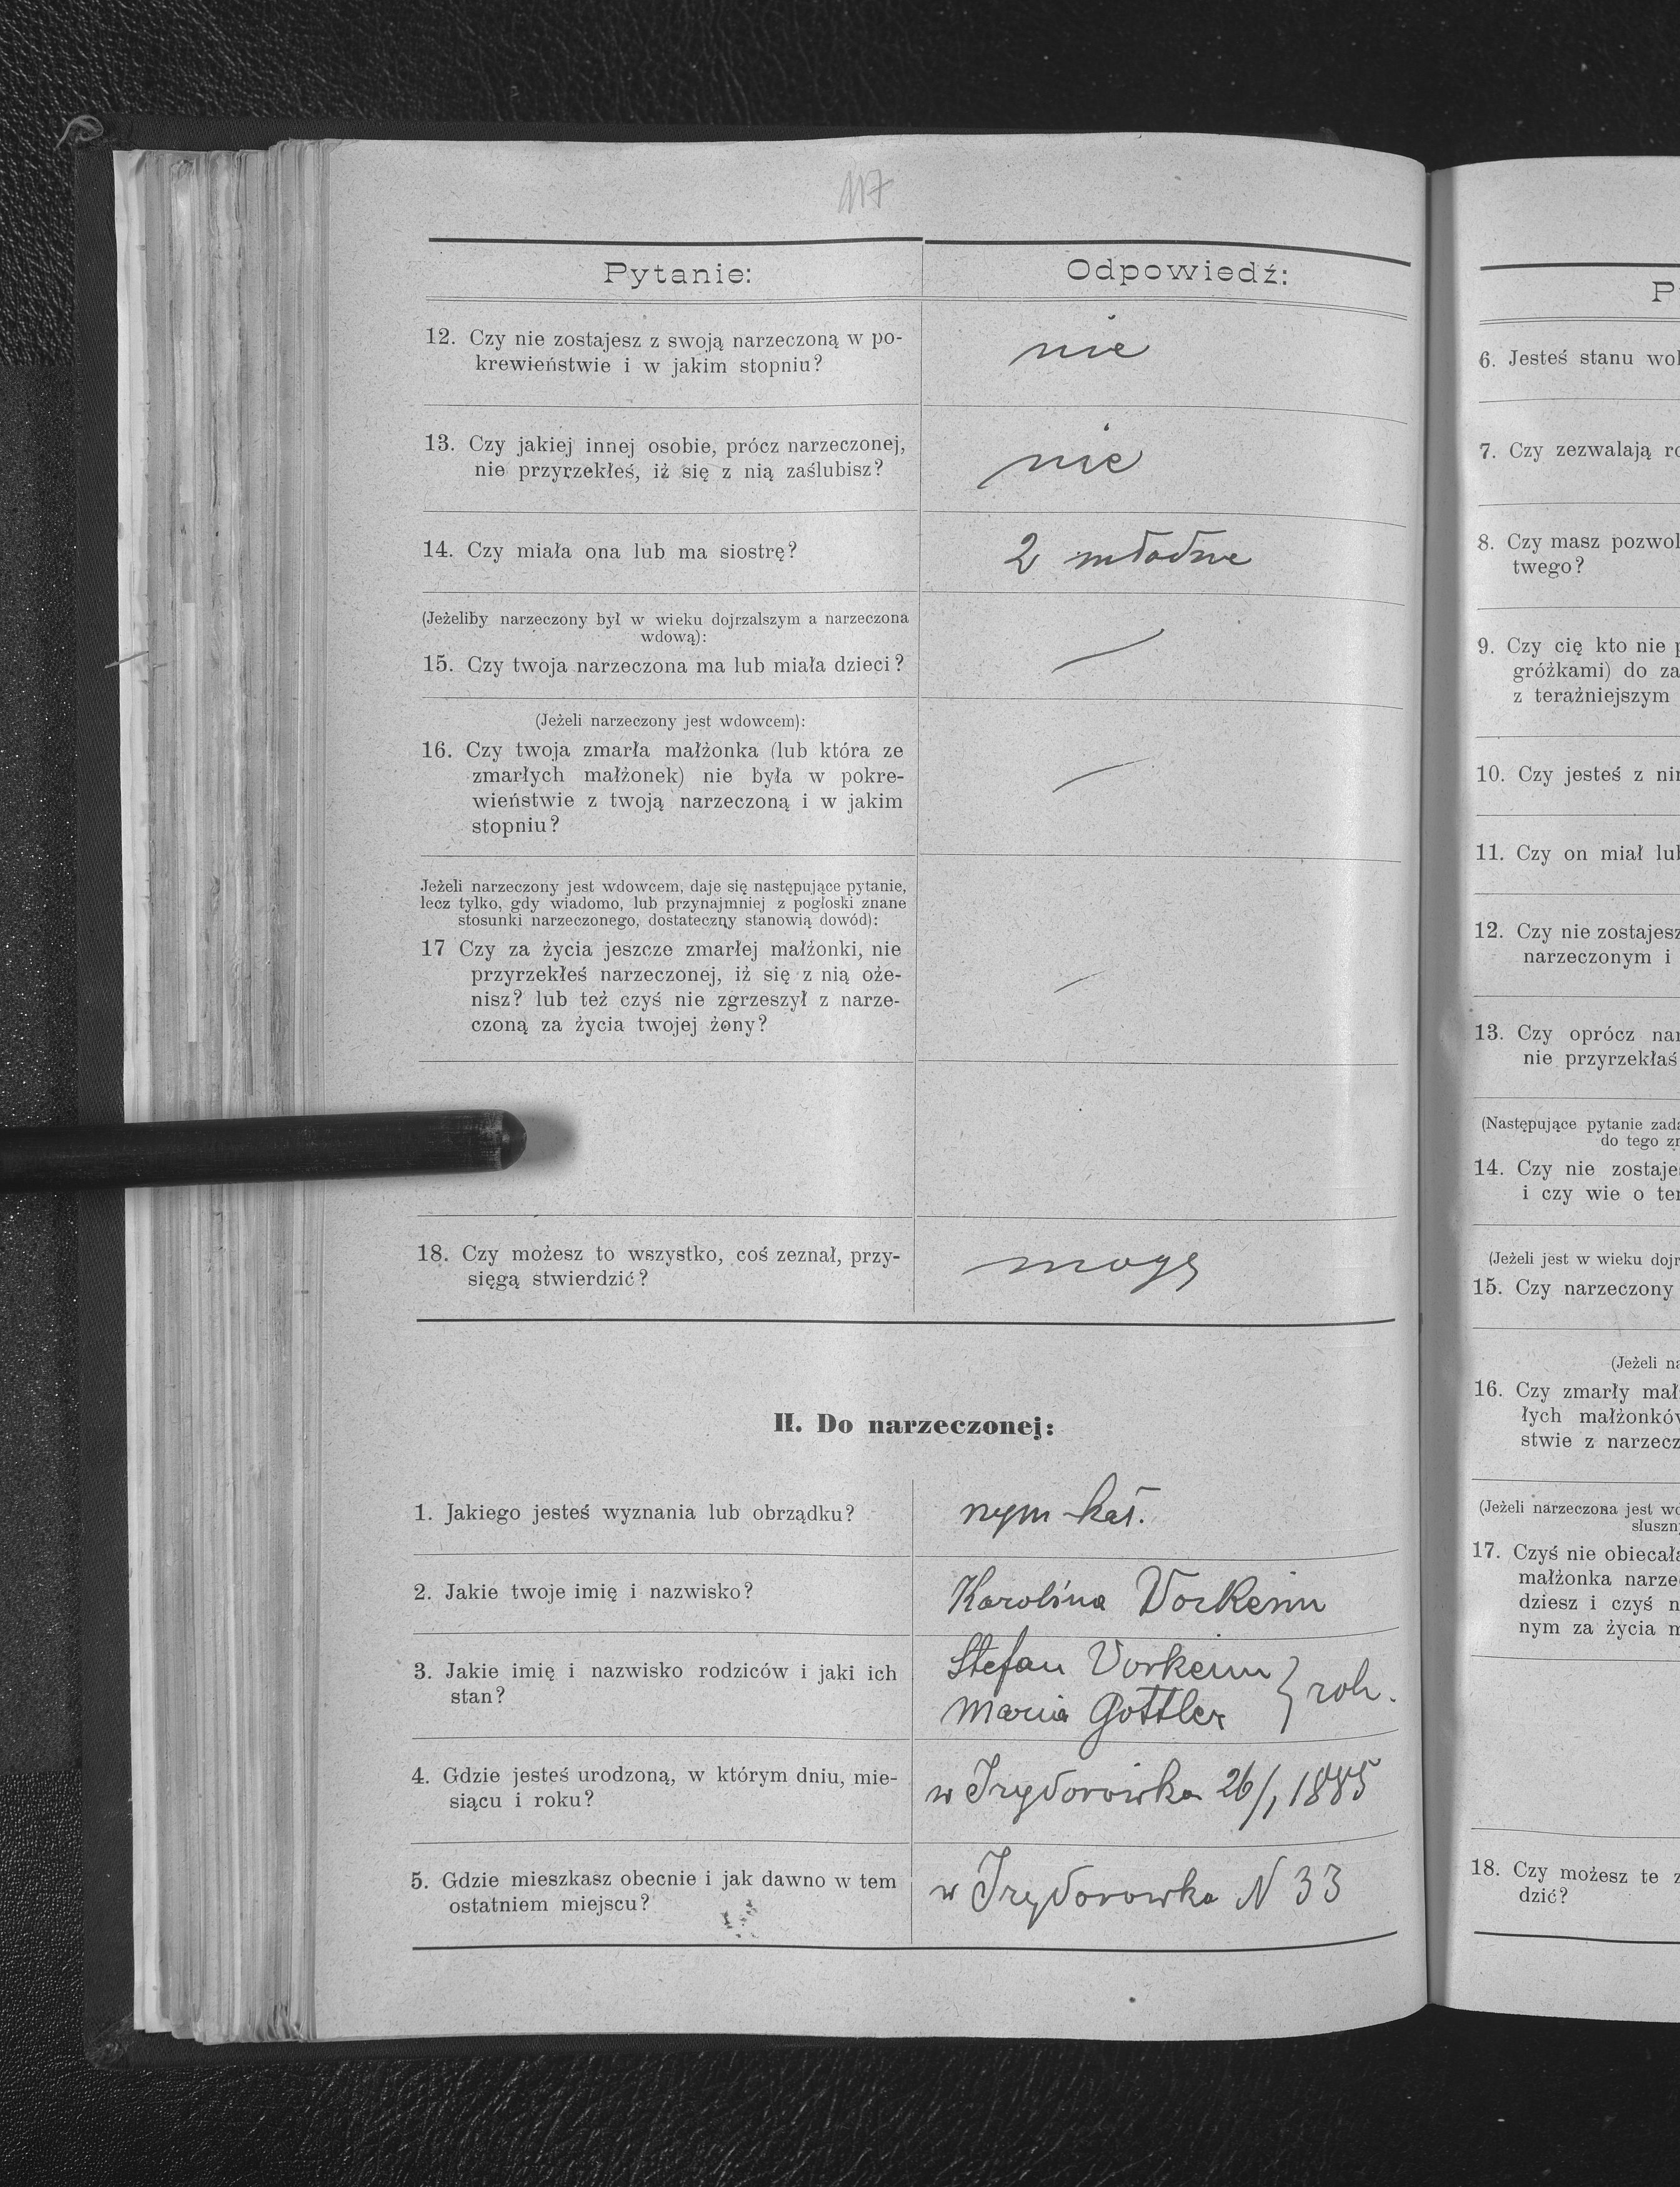 117
Pytanie:
Odpowiedź:
12. Czy nie zostajesz z swoją narzeczoną w po-
krewieństwie i w jakim stopniu?
nie
13. Czy jakiej innej osobie, prócz narzeczonej,
nie przyrzekłeś, iż się z nią zaślubisz?
nie
14. Czy miała ona lub ma siostrę?
2 młodne
(Jeżeliby narzeczony był w wieku dojrzalszym a narzeczona
wdową):
15. Czy twoja narzeczona ma lub miała dzieci?
(Jeżeli narzeczony jest wdowcem):
16. Czy twoja zmarła małżonka (lub która ze
zmarłych małżonek) nie była w pokre-
wieństwie z twoją narzeczoną i w jakim
stopniu?
Jeżeli narzeczony jest wdowcem, daje się następujące pytanie,
lecz tylko, gdy wiadomo, lub przynajmniej z pogłoski znane
stosunki narzeczonego, dostateczny stanowią dowód):
17 Czy za życia jeszcze zmarłej małżonki, nie
przyrzekłeś narzeczonej, iż się z nią oże-
nisz? lub też czyś nie zgrzeszył z narze-
czoną za życia twojej żony?
18. Czy możesz to wszystko, coś zeznał, przy-
sięgą stwierdzić?
mogę
II. Do narzeczonej:
1. Jakiego jesteś wyznania lub obrządku?
rzym kat.
2. Jakie twoje imię i nazwisko?
Karolina Vorkeim
3. Jakie imię i nazwisko rodziców i jaki ich
stan?
Stefan Vorkeim
Maria Gottler } rol.
4. Gdzie jesteś urodzoną, w którym dniu, mie-
siącu i roku?
w Izydorówka 26/1 1885
5. Gdzie mieszkasz obecnie i jak dawno w tem
ostatniem miejscu?
w Izydorowka N 33
P
6. Jesteś stanu wol
7. Czy zezwalają ro
8. Czy masz pozwol
twego?
9. Czy cię kto nie p
gróżkami) do za
z teraźniejszym
10. Czy jesteś z nim
11. Czy on miał lub
12. Czy nie zostajesz
narzeczonym i
13. Czy oprócz nar
nie przyrzekłaś
(Następujące pytanie zada
do tego zm
14. Czy nie zostajes
i czy wie o tem
(Jeżeli jest w wieku dojr
15. Czy narzeczony
(Jeżeli na
16. Czy zmarły mał
łych małżonków
stwie z narzecz
(Jeżeli narzeczona jest wd
słuszn
17. Czyś nie obiecała
małżonka narze
dziesz i czyś n
nym za życia m
18. Czy możesz te z
dzić?